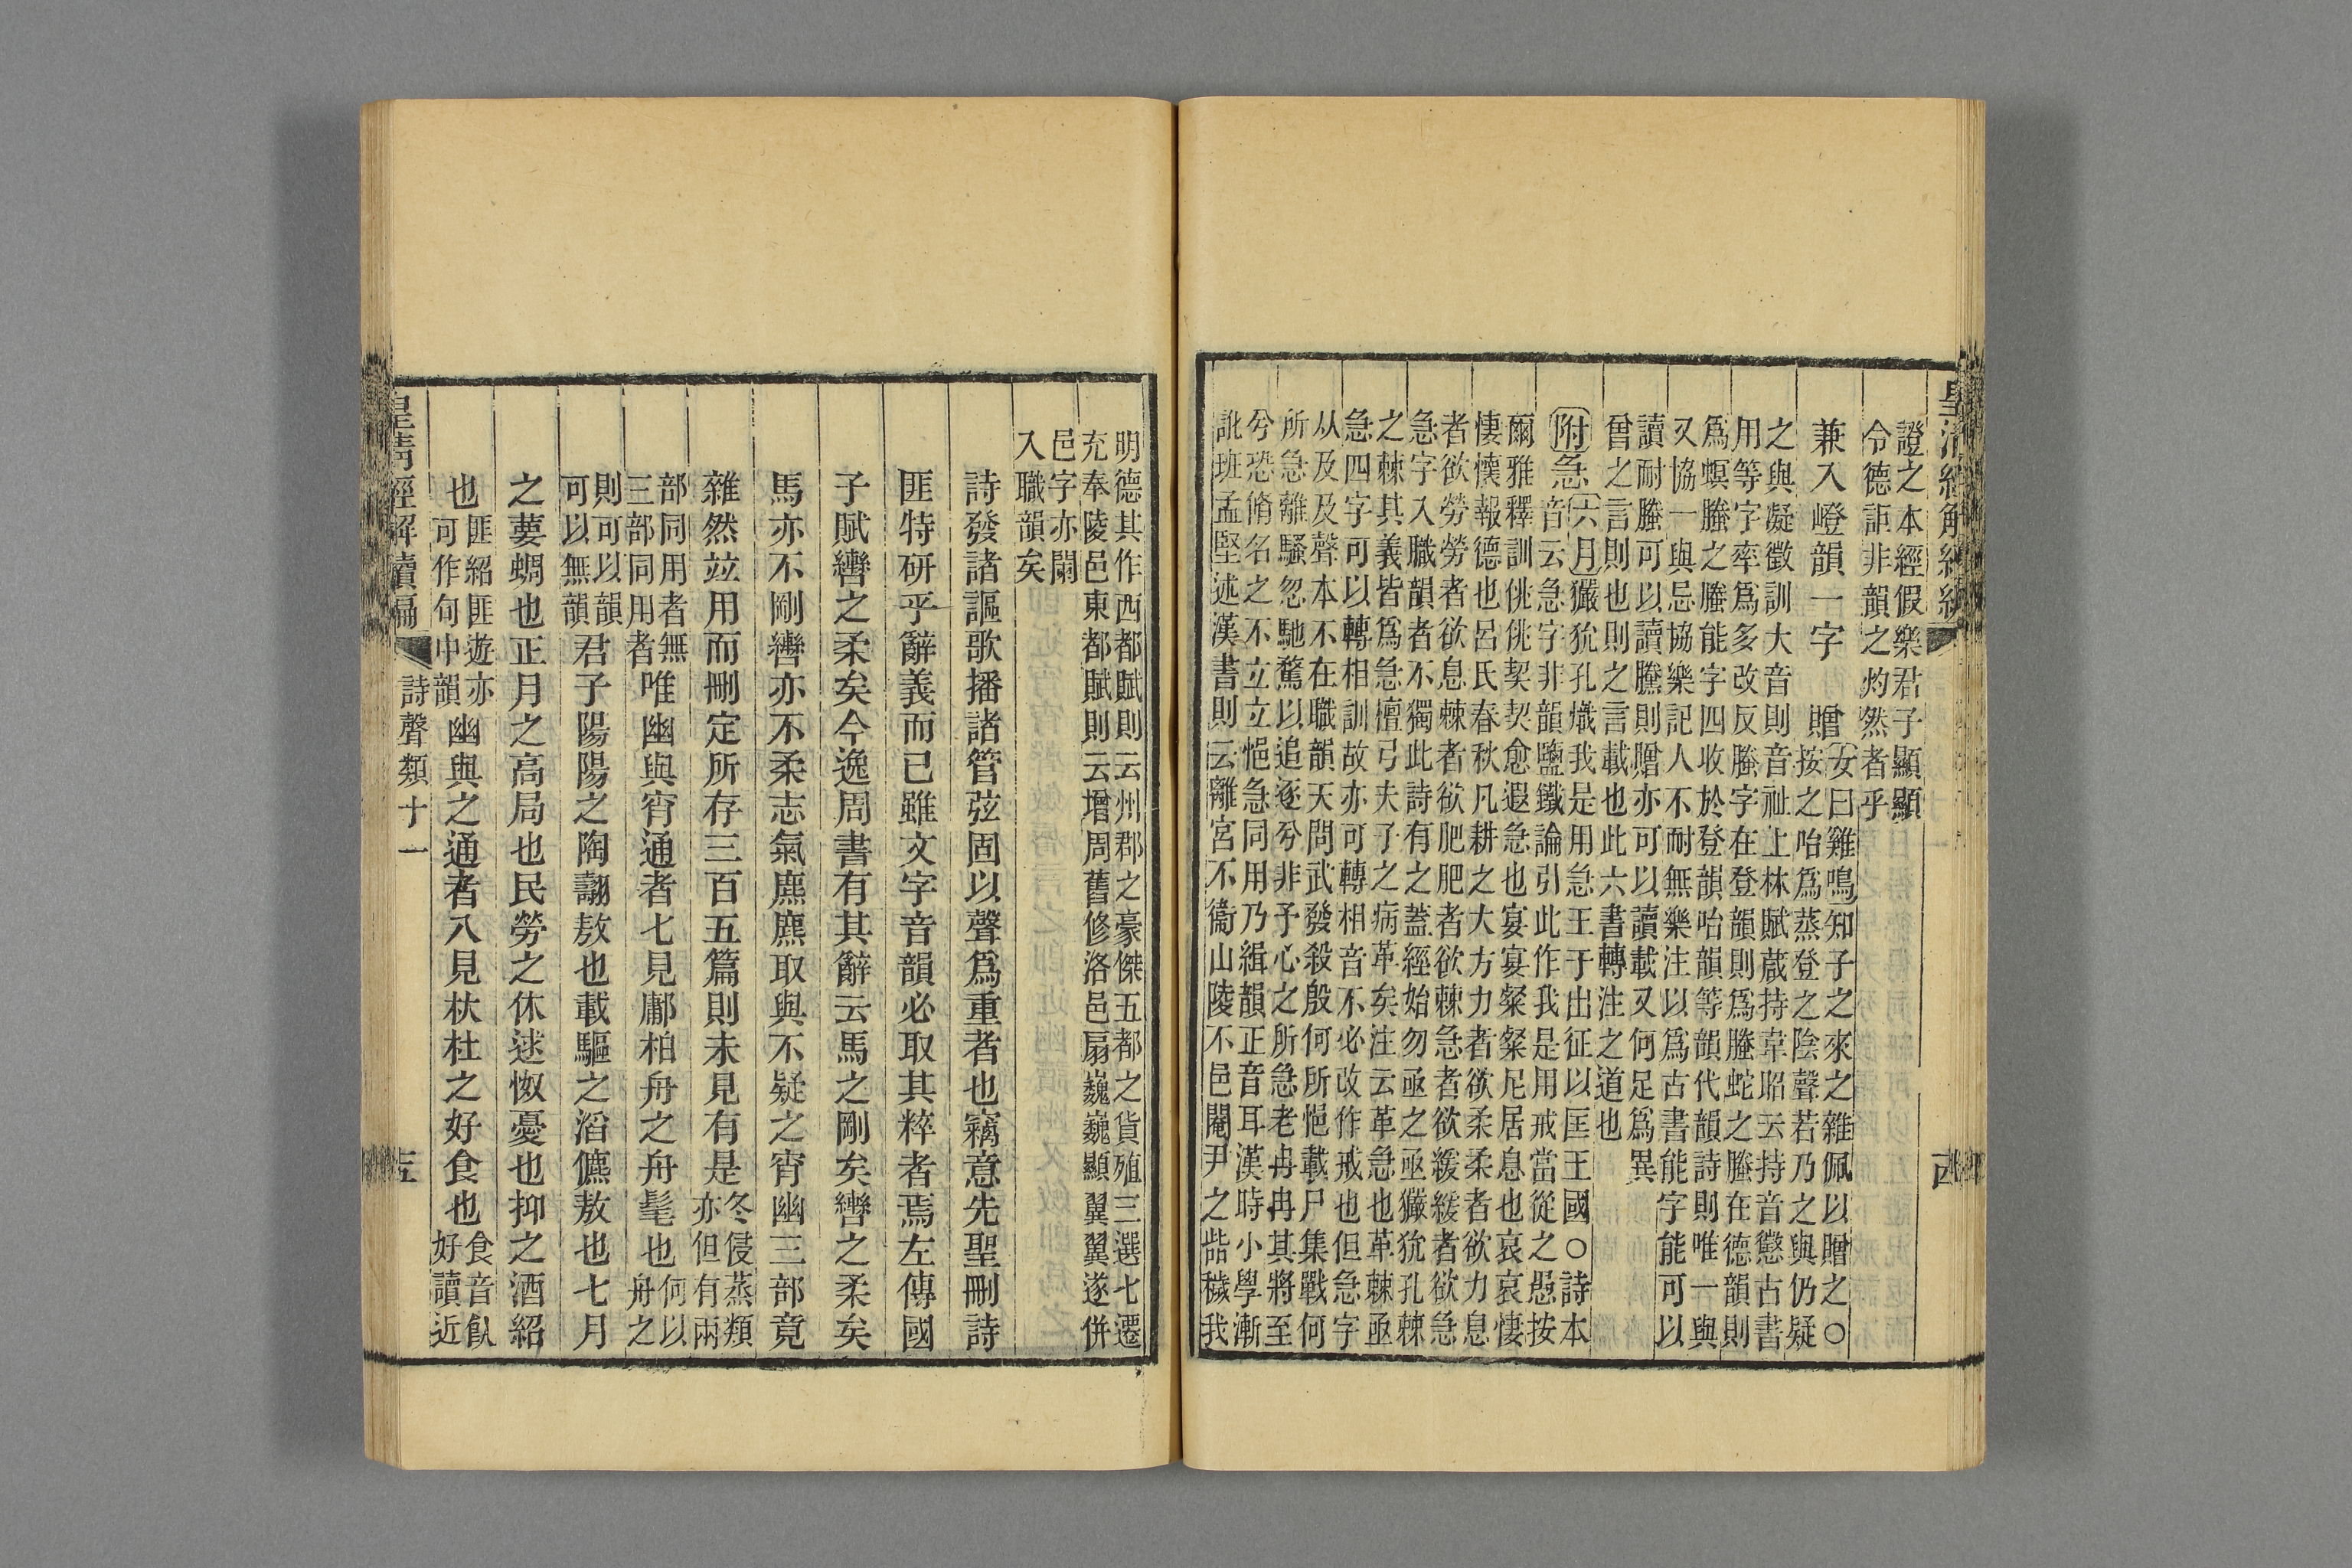 證之本經假樂君子顯顯
令德詎非韻之灼然者乎
兼入嶝韻一字
贈
女曰雞鳴知子之來之雜佩以贈之○
按之咍爲蒸登之陰聲若乃之與仍疑
之與凝徵訓大音則音祉上林賦葴持韋昭云持音懲古書
用等字率爲多改反螣字在登韻則爲螣蛇之螣在德韻則
爲螟螣之螣能字四收於登韻咍韻等韻代韻詩則唯一與
又協一與忌協樂記人不耐無樂注以爲古書能字能可以
讀耐螣可以讀騰則贈亦可以讀載又何足爲異
曾之言則也則之言載也此六書轉注之道也
附急
六月玁狁孔熾我是用急王于出征以匡王國○詩本
音云急字非韻鹽鐵論引此作我是用戒當從之愚按
爾雅釋訓佻佻契契愈遐急也宴宴粲粲尼居息也哀哀悽
悽懷報德也呂氏春秋凡耕之大方力者欲柔柔者欲力息
者欲勞勞者欲息棘者欲肥肥者欲棘急者欲緩緩者欲急
急字入職韻者不獨此詩有之蓋經始勿亟之亟玁狁孔棘
之棘其義皆爲急檀弓夫子之病革矣注云革急也革棘亟
急四字可以轉相訓故亦可轉相音不必改作戒也但急字
从及及聲本不在職韻天問武發殺殷何所悒載尸集戰何
所急離騷忽馳騖以追逐兮非予心之所急老冉冉其將至
兮恐脩名之不立立悒急同用乃緝韻正音耳漢時小學漸
訛班孟堅述漢書則云離宮不衞山陵不邑閹尹之呰穢我
明德其作西都賦則云州郡之豪傑五都之貨殖三選七遷
充奉陵邑東都賦則云增周舊修洛邑扇巍巍顯翼翼遂併
邑字亦闌
入職韻矣
詩發諸謳歌播諸管弦固以聲爲重者也竊意先聖刪詩
匪特研乎辭義而已雖文字音韻必取其粹者焉左傳國
子賦轡之柔矣今逸周書有其辭云馬之剛矣轡之柔矣
馬亦不剛轡亦不柔志氣麃麃取與不疑之宵幽三部竟
雜然竝用而刪定所存三百五篇則未見有是
冬侵蒸類
亦但有兩
部同用者無
三部同用者
唯幽與宵通者七見鄘柏舟之舟髦也
何以
舟之
則可以韻
可以無韻
君子陽陽之陶翿敖也載驅之滔儦敖也七月
之葽蜩也正月之高局也民勞之休逑怓憂也抑之酒紹
也
匪紹匪遊亦
可作句中韻
幽與之通者八見杕杜之好食也
食音飤
好讀近
皇清經解續編
詩聲類十一